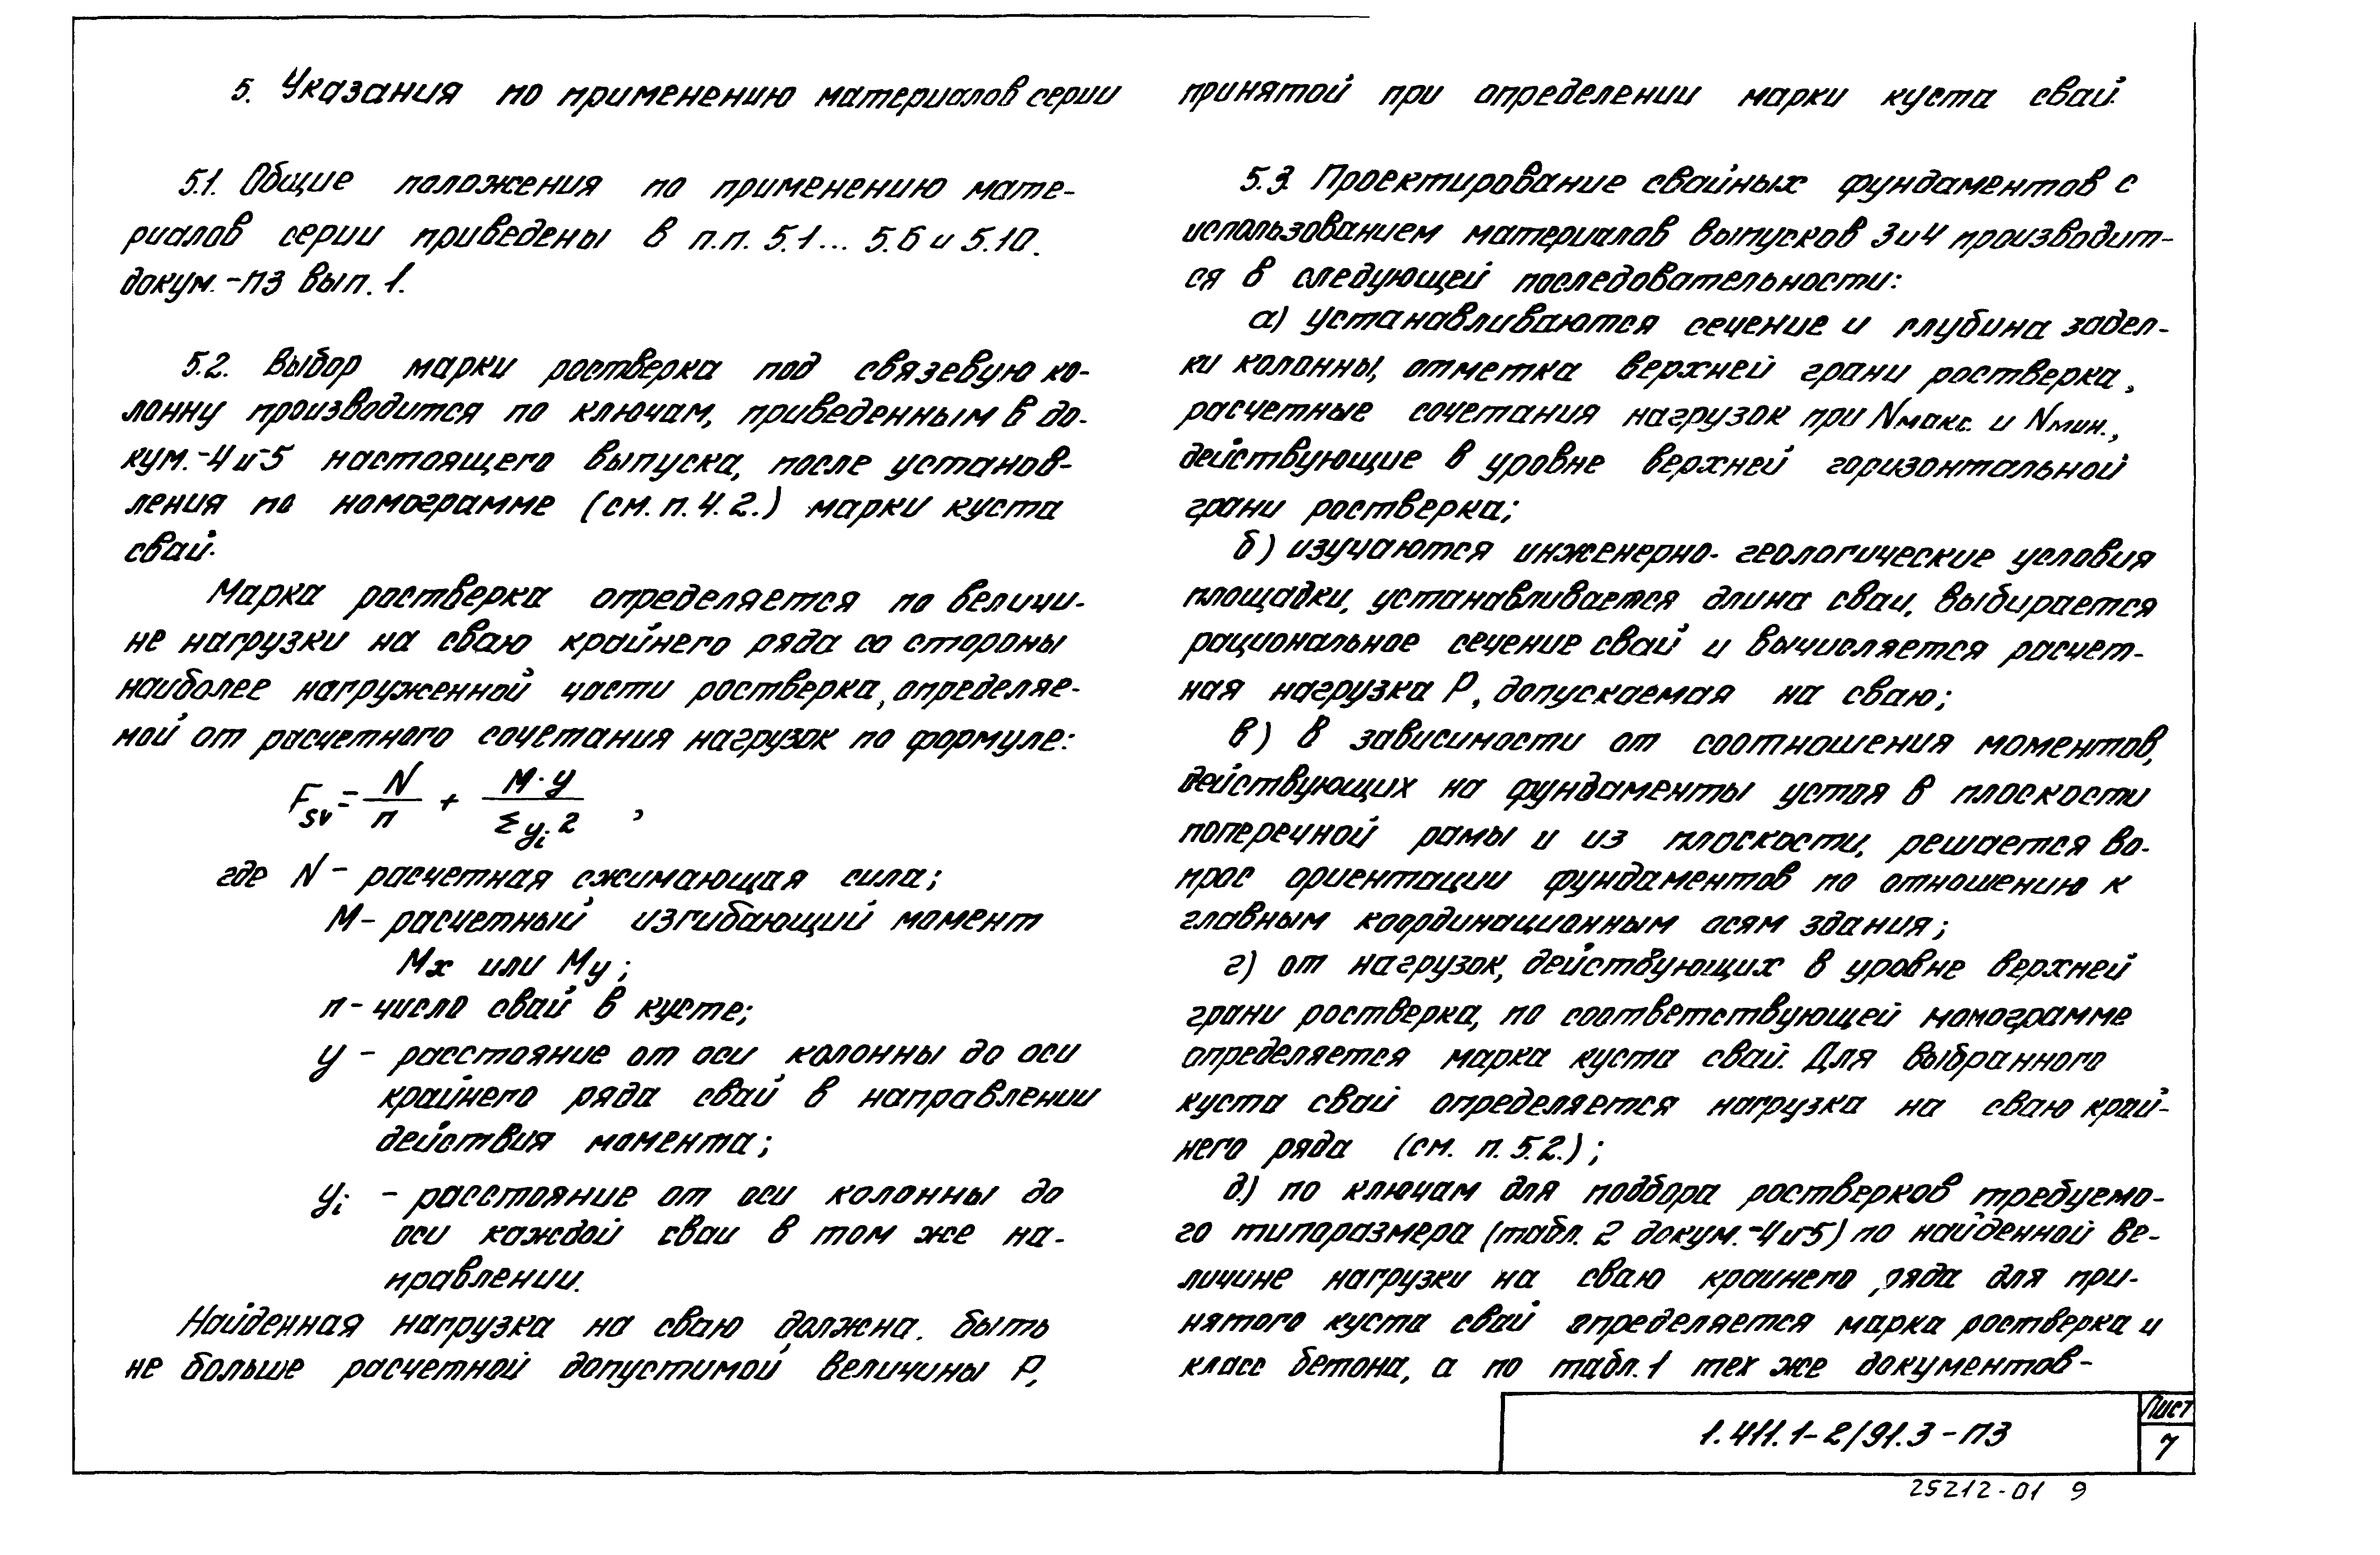 5. Указания по применению материалов серии
5.1. Общие положения по применению мате-
риалов серии приведены в п.п. 5.1... 5.6 и 5.10.
докум.-ПЗ вып. 1.
5.2. Выбор марки ростверка под связевую ко-
лонну производится по ключам, приведенным в до-
кум.-4 и -5 настоящего выпуска, после установ-
ления по номограмме (см. п. 4.2.) марки куста
свай.
Марка ростверка определяется по величи-
не нагрузки на сваю крайнего ряда со стороны
наиболее нагруженной части ростверка, определяе-
мой от расчетного сочетания нагрузок по формуле:
Fsv = N/n + M·y/Σyi² ,
где N - расчетная сжимающая сила;
M - расчетный изгибающий момент
Mx или My;
n - число свай в кусте;
y - расстояние от оси колонны до оси
крайнего ряда свай в направлении
действия момента;
yi - расстояние от оси колонны до
оси каждой сваи в том же на-
правлении.
Найденная нагрузка на сваю должна быть
не больше расчетной допустимой величины Р,
принятой при определении марки куста свай.
5.3. Проектирование свайных фундаментов с
использованием материалов выпусков 3 и 4 производит-
ся в следующей последовательности:
а) устанавливаются сечение и глубина задел-
ки колонны, отметка верхней грани ростверка,
расчетные сочетания нагрузок при Nмакс. и Nмин.,
действующие в уровне верхней горизонтальной
грани ростверка;
б) изучаются инженерно-геологические условия
площадки, устанавливается длина сваи, выбирается
рациональное сечение свай и вычисляется расчет-
ная нагрузка Р, допускаемая на сваю;
в) в зависимости от соотношения моментов,
действующих на фундаменты устоя в плоскости
поперечной рамы и из плоскости, решается во-
прос ориентации фундаментов по отношению к
главным координационным осям здания;
г) от нагрузок, действующих в уровне верхней
грани ростверка, по соответствующей номограмме
определяется марка куста свай. Для выбранного
куста свай определяется нагрузка на сваю край-
него ряда (см. п. 5.2.);
д) по ключам для подбора ростверков требуемо-
го типоразмера (табл. 2 докум.-4 и -5) по найденной ве-
личине нагрузки на сваю крайнего ряда для при-
нятого куста свай определяется марка ростверка и
класс бетона, а по табл. 1 тех же документов-
1.411.1-2/91.3-ПЗ
Лист
7
25212-01 9